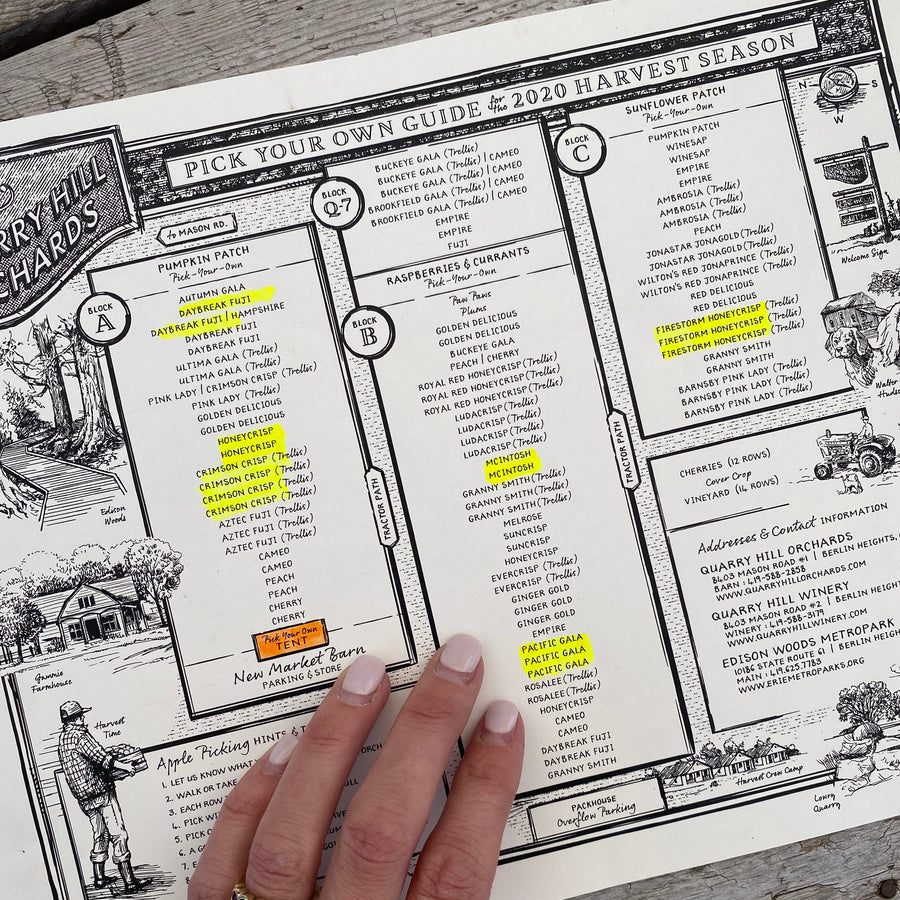 PICK YOUR OWN GUIDE for the 2020 HARVEST SEASON
RRY HILL
CHARDS
to MASON RD.
BLOCK A
PUMPKIN PATCH
Pick-Your-Own
AUTUMN GALA
DAYBREAK FUJI
DAYBREAK FUJI | HAMPSHIRE
DAYBREAK FUJI
DAYBREAK FUJI
ULTIMA GALA (Trellis)
ULTIMA GALA (Trellis)
PINK LADY | CRIMSON CRISP (Trellis)
PINK LADY (Trellis)
GOLDEN DELICIOUS
GOLDEN DELICIOUS
HONEYCRISP
HONEYCRISP
CRIMSON CRISP (Trellis)
CRIMSON CRISP (Trellis)
CRIMSON CRISP (Trellis)
CRIMSON CRISP (Trellis)
AZTEC FUJI (Trellis)
AZTEC FUJI (Trellis)
AZTEC FUJI (Trellis)
CAMEO
CAMEO
PEACH
PEACH
CHERRY
CHERRY
Pick Your Own
TENT
New Market Barn
PARKING & STORE
TRACTOR PATH
BLOCK Q-7
BUCKEYE GALA (Trellis)
BUCKEYE GALA (Trellis) | CAMEO
BUCKEYE GALA (Trellis) | CAMEO
BROOKFIELD GALA (Trellis) | CAMEO
BROOKFIELD GALA (Trellis) | CAMEO
EMPIRE
EMPIRE
FUJI
RASPBERRIES & CURRANTS
Pick-Your-Own
BLOCK B
Paw Paws
Plums
GOLDEN DELICIOUS
GOLDEN DELICIOUS
BUCKEYE GALA
PEACH | CHERRY
ROYAL RED HONEYCRISP (Trellis)
ROYAL RED HONEYCRISP (Trellis)
ROYAL RED HONEYCRISP (Trellis)
LUDACRISP (Trellis)
LUDACRISP (Trellis)
LUDACRISP (Trellis)
MCINTOSH
MCINTOSH
GRANNY SMITH (Trellis)
GRANNY SMITH (Trellis)
GRANNY SMITH (Trellis)
MELROSE
SUNCRISP
SUNCRISP
HONEYCRISP
EVERCRISP (Trellis)
EVERCRISP (Trellis)
GINGER GOLD
GINGER GOLD
GINGER GOLD
EMPIRE
PACIFIC GALA
PACIFIC GALA
PACIFIC GALA
ROSALEE (Trellis)
ROSALEE (Trellis)
HONEYCRISP
CAMEO
CAMEO
DAYBREAK FUJI
DAYBREAK FUJI
GRANNY SMITH
TRACTOR PATH
BLOCK C
SUNFLOWER PATCH
Pick-Your-Own
PUMPKIN PATCH
WINESAP
WINESAP
EMPIRE
EMPIRE
AMBROSIA (Trellis)
AMBROSIA (Trellis)
AMBROSIA (Trellis)
PEACH
JONASTAR JONAGOLD (Trellis)
JONASTAR JONAGOLD (Trellis)
WILTON'S RED JONAPRINCE (Trellis)
WILTON'S RED JONAPRINCE (Trellis)
RED DELICIOUS
RED DELICIOUS
FIRESTORM HONEYCRISP (Trellis)
FIRESTORM HONEYCRISP (Trellis)
FIRESTORM HONEYCRISP (Trellis)
GRANNY SMITH
GRANNY SMITH
BARNSBY PINK LADY (Trellis)
BARNSBY PINK LADY (Trellis)
BARNSBY PINK LADY (Trellis)
N
S
W
Welcome Sign
Walter
CHERRIES (12 ROWS)
Cover Crop
VINEYARD (14 ROWS)
Addresses & Contact INFORMATION
QUARRY HILL ORCHARDS
8403 MASON ROAD #1 | BERLIN HEIGHTS,
BARN : 419-588-2858
WWW.QUARRYHILLORCHARDS.COM
QUARRY HILL WINERY
8403 MASON ROAD #2 | BERLIN HEIGH
WINERY : 419-588-3179
WWW.QUARRYHILLWINERY.COM
EDISON WOODS METROPARK
10186 STATE ROUTE 61 | BERLIN HEIG
MAIN : 419.625.7783
WWW.ERIEMETROPARKS.ORG
Edison Woods
Grannie Farmhouse
Harvest Time
Apple Picking HINTS &
1. LET US KNOW WHAT
2. WALK OR TAKE
3. EACH ROW
4. PICK WI
5. PICK
6. A
7. E
PACKHOUSE
Overflow Parking
Harvest Crew Camp
Lowry Quarry